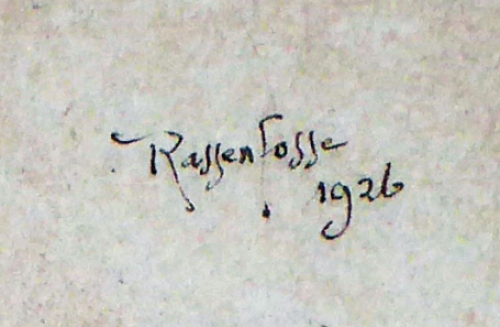 Rassenfosse
1926